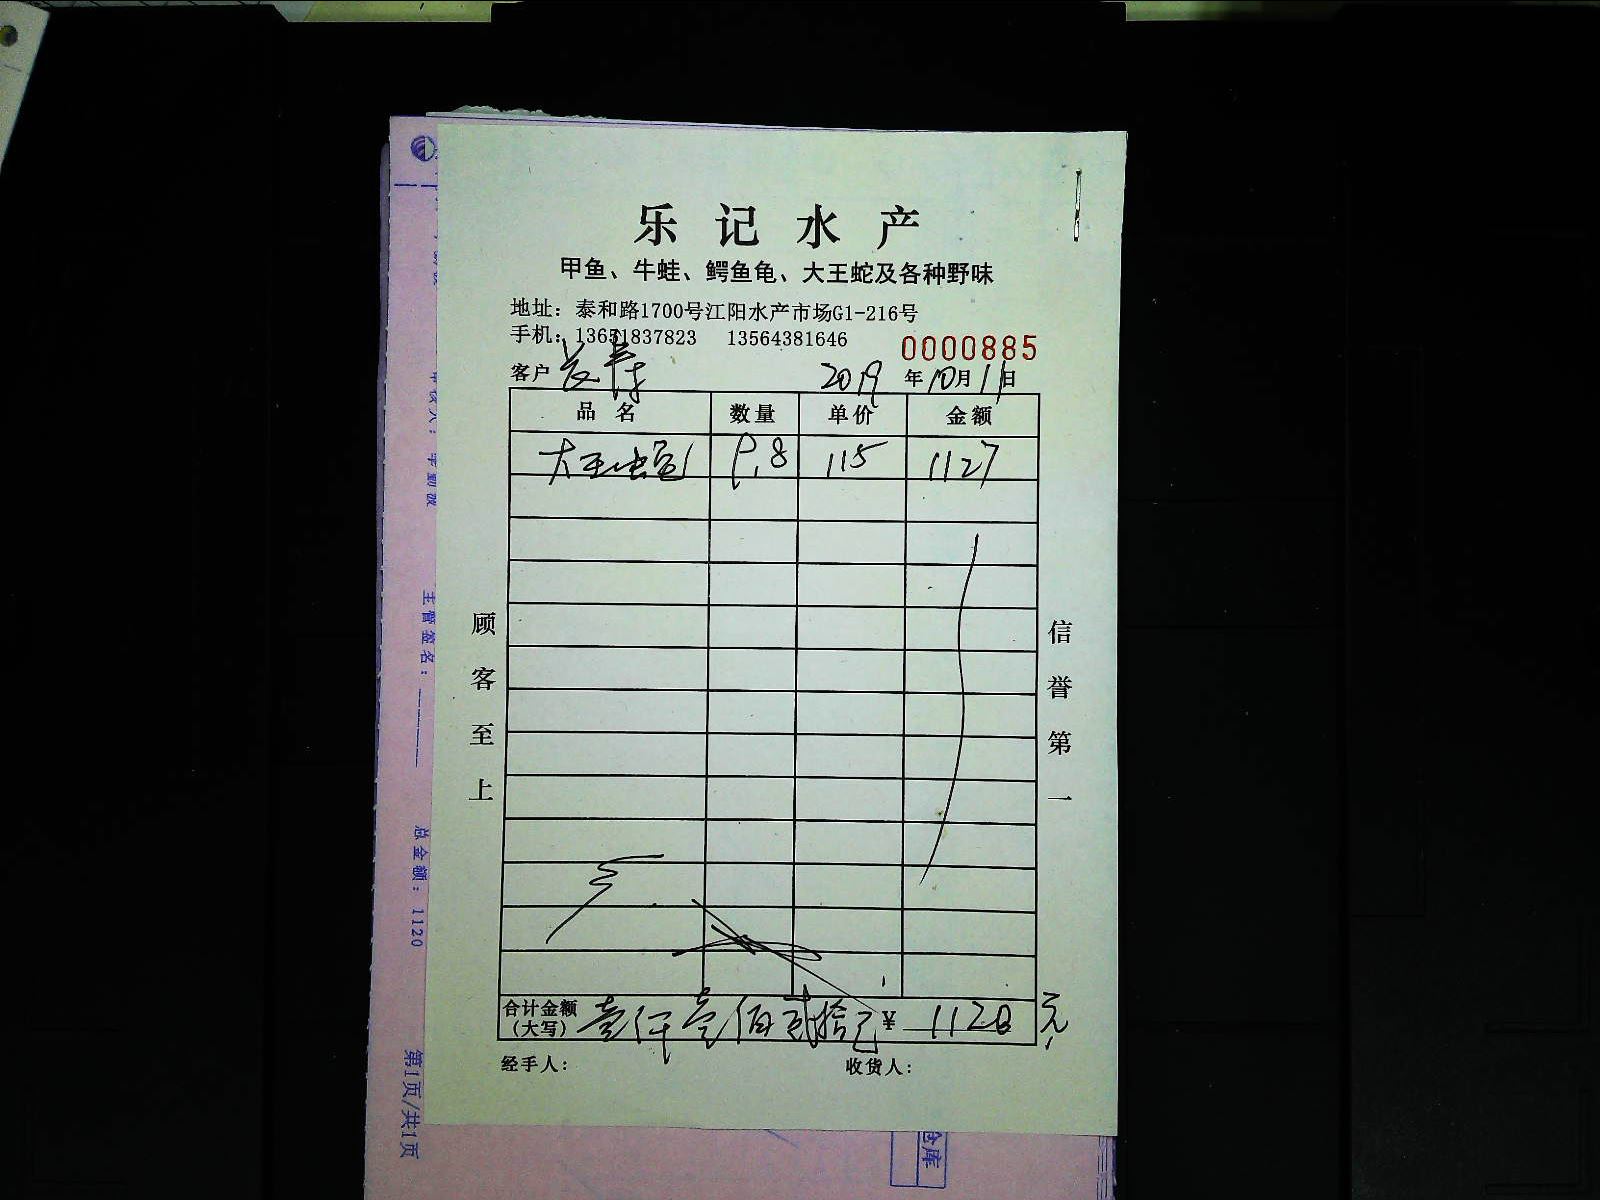 乐记水产
甲鱼、牛蛙、鳄鱼龟、大王蛇及各种野味
地址：泰和路1700号江阳水产市场G1-216号
手机：13651837823 13564381646
0000885
客户 2019年10月11日
品名 数量 单价 金额
大王蛇 9.8 115 1127
顾客至上
信誉第一
合计金额（大写） 壹仟壹佰贰拾 ¥ 1120 元
经手人： 收货人：
主管签名：
总金额：1120
第1页/共1页
仓库